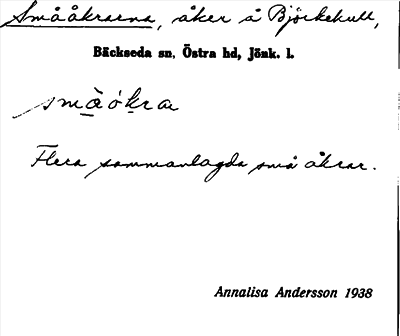 Smååkrarna, åker å Björkekull,
Bäckseda sn, Östra hd, Jönk. l.
småȯ́kra
Flera sammanlagda små åkrar.
Annalisa Andersson 1938